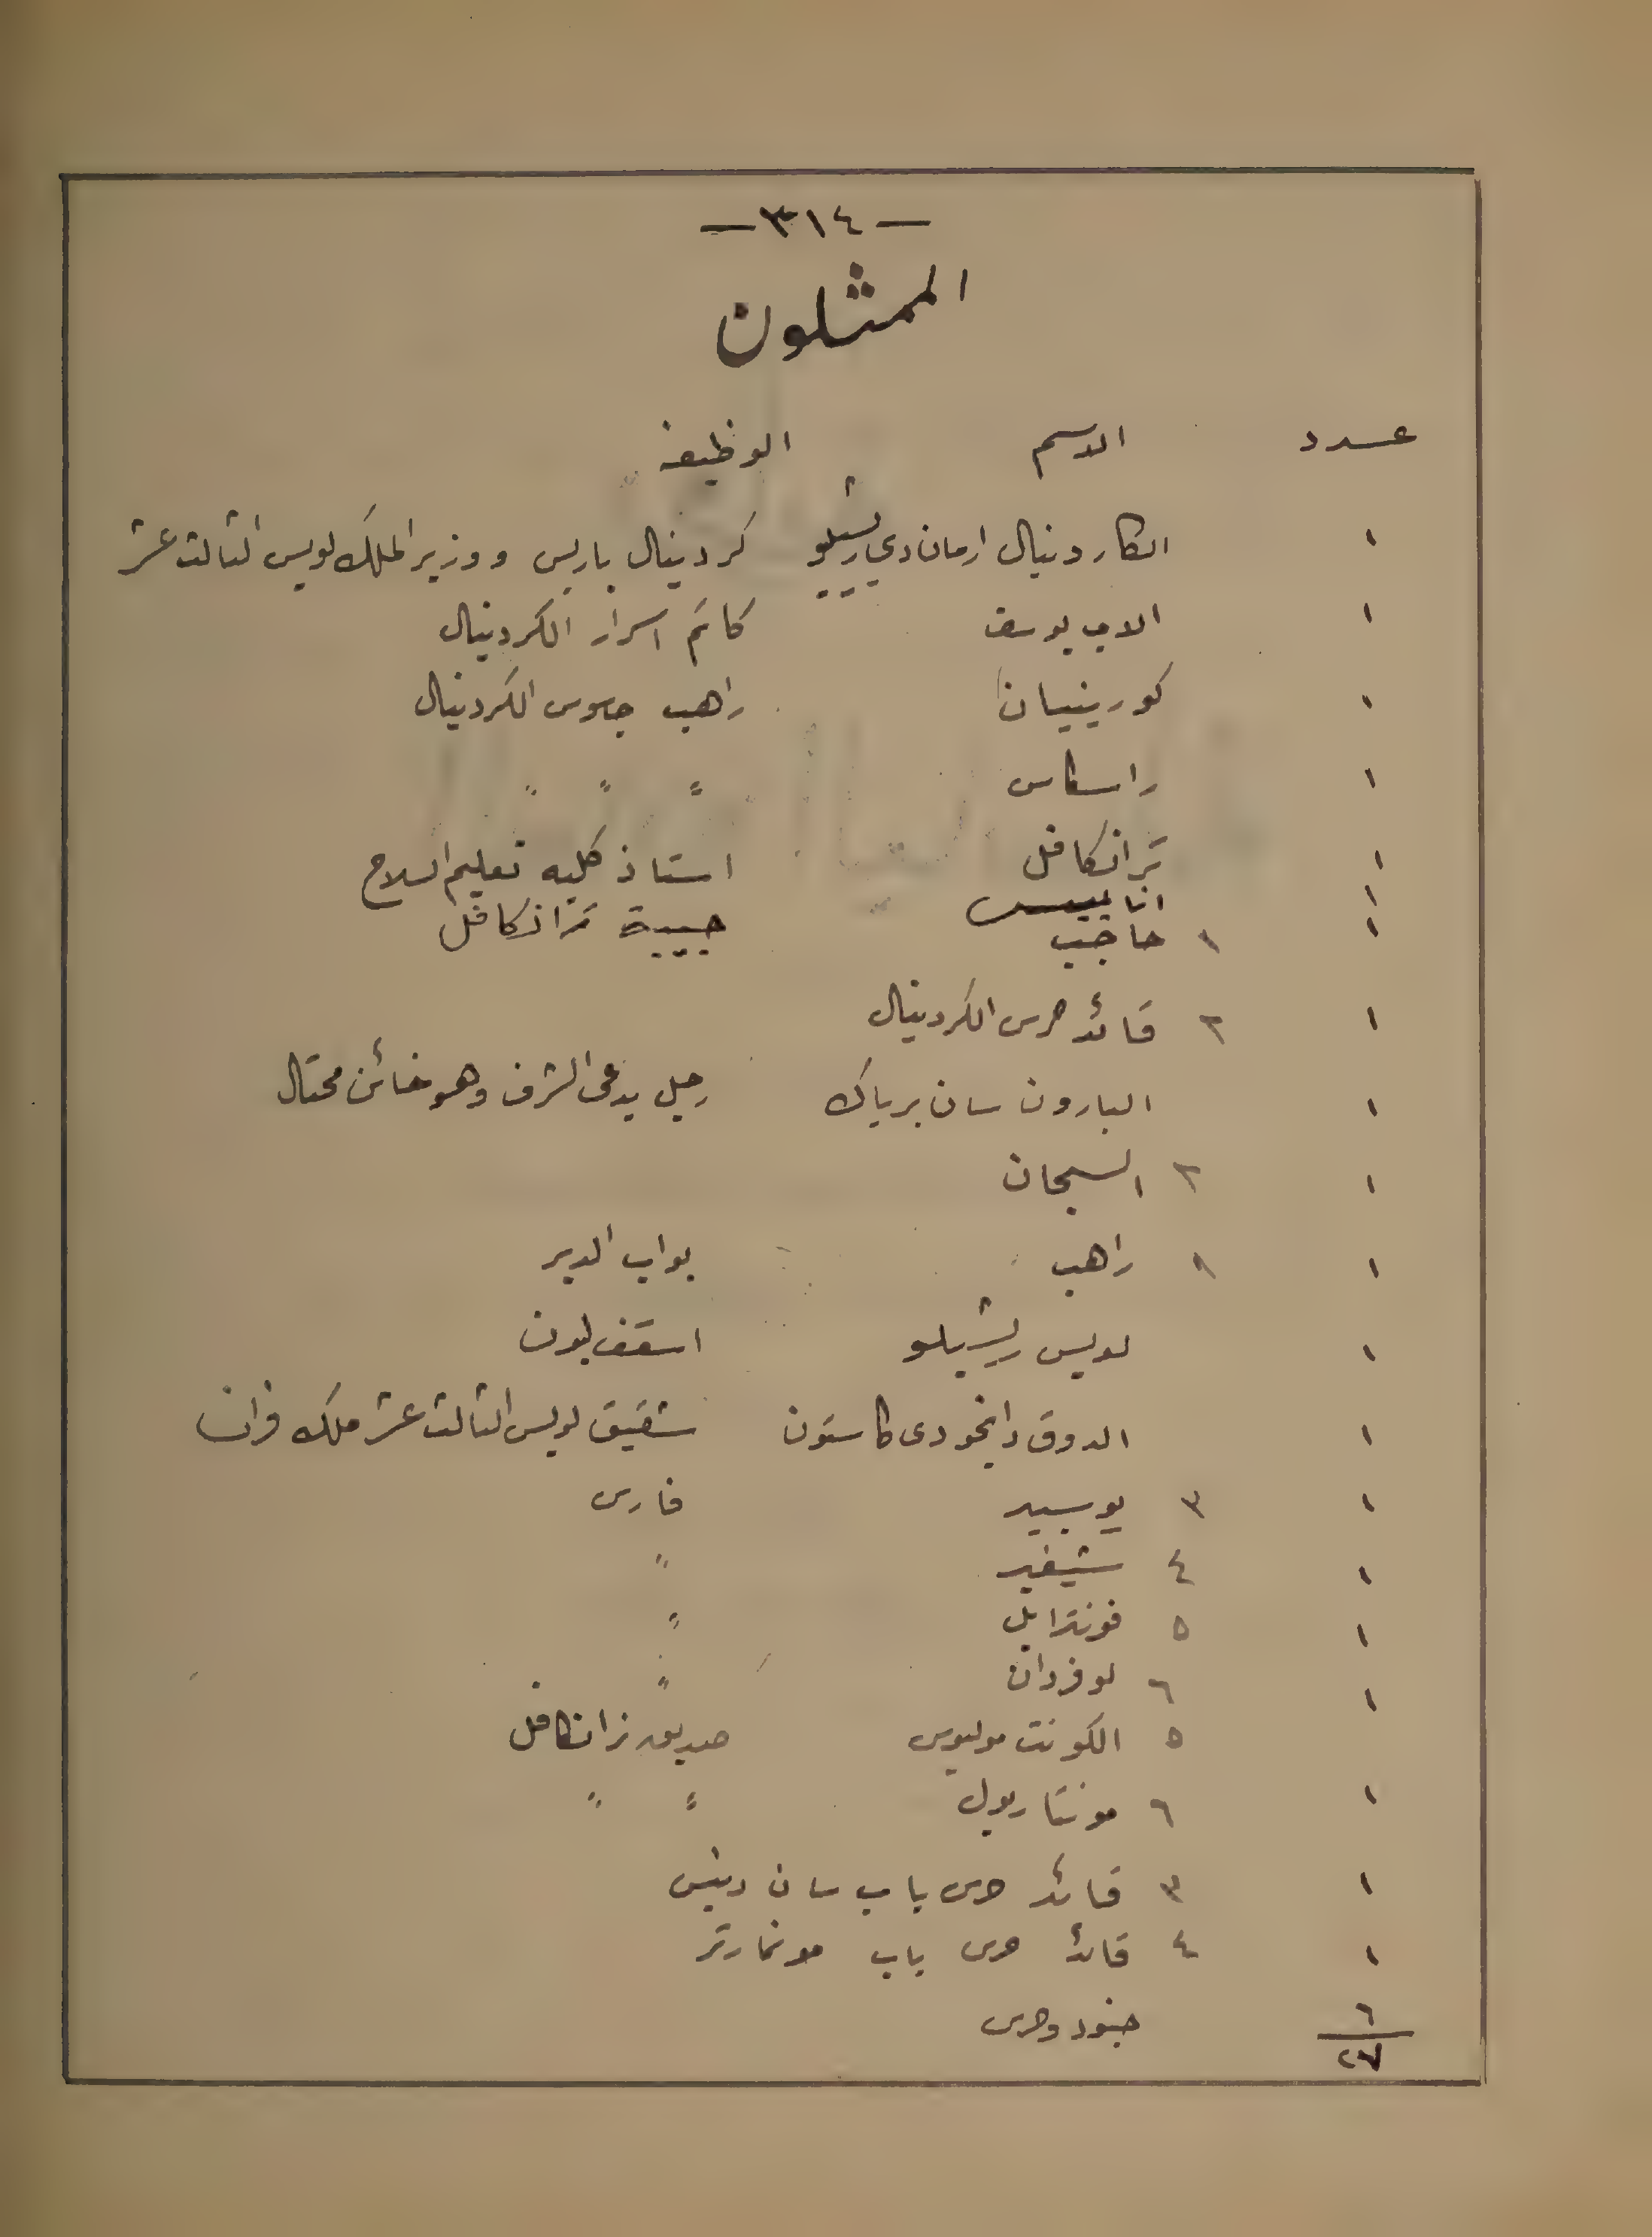 — ٣١٤ —
الممثلون
عدد الاسم الوظيفة
١ الكاردينال ارمان دي ريشيلو كردينال باريس ووزير الملك لويس الثالث عشر
١ الاب يوسف كاتم اسرار الكردينال
١ كورينيان راهب جاسوس الكردينال
١ راسكاس " " "
١ ترانكافل استاذ كليه تعليم السلاح
١ انا ييس حبيبة ترانكافل
١ ١ حاجب
١ ٢ قائد حرس الكردينال
١ البارون سان برياك رجل يدعى الشرف وهو خائن محتال
١ ٢ السجان
١ ١ راهب بواب الدير
١ لويس ريشيلو اسقف ليون
١ الدوق دانجو دى كاستون شقيق لويس الثالث عشر ملك فرانسا
١ ٣ بوسيير فارس
١ ٤ شيفير "
١ ٥ فونترايل "
١ ٦ لوفردان "
٥ الكونت موليوس صديق ترانكافل
١ ٦ مونتاريول " "
١ ٣ قائد حرس باب سان دينس
١ ٤ قائد حرس باب مونمارتر
٦ جنود وحرس
٢٧